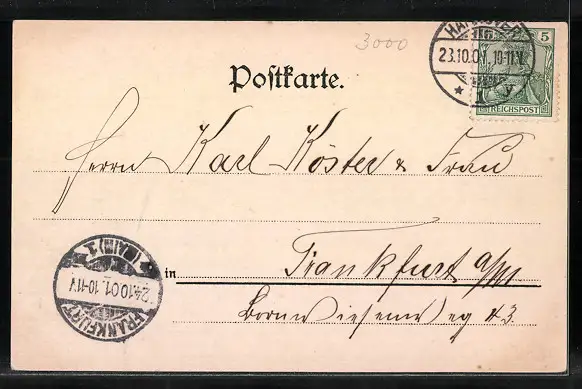 3000
HANNOVER
23.10.01. 10-11 V.
* 1 y
5
REICHSPOST
Postkarte.
Herrn Karl Köster & Frau
in Frankfurt a/M
Bornwiesenweg 43.
FRANKFURT
24.10.01. 10-11 V
(MAIN) 1